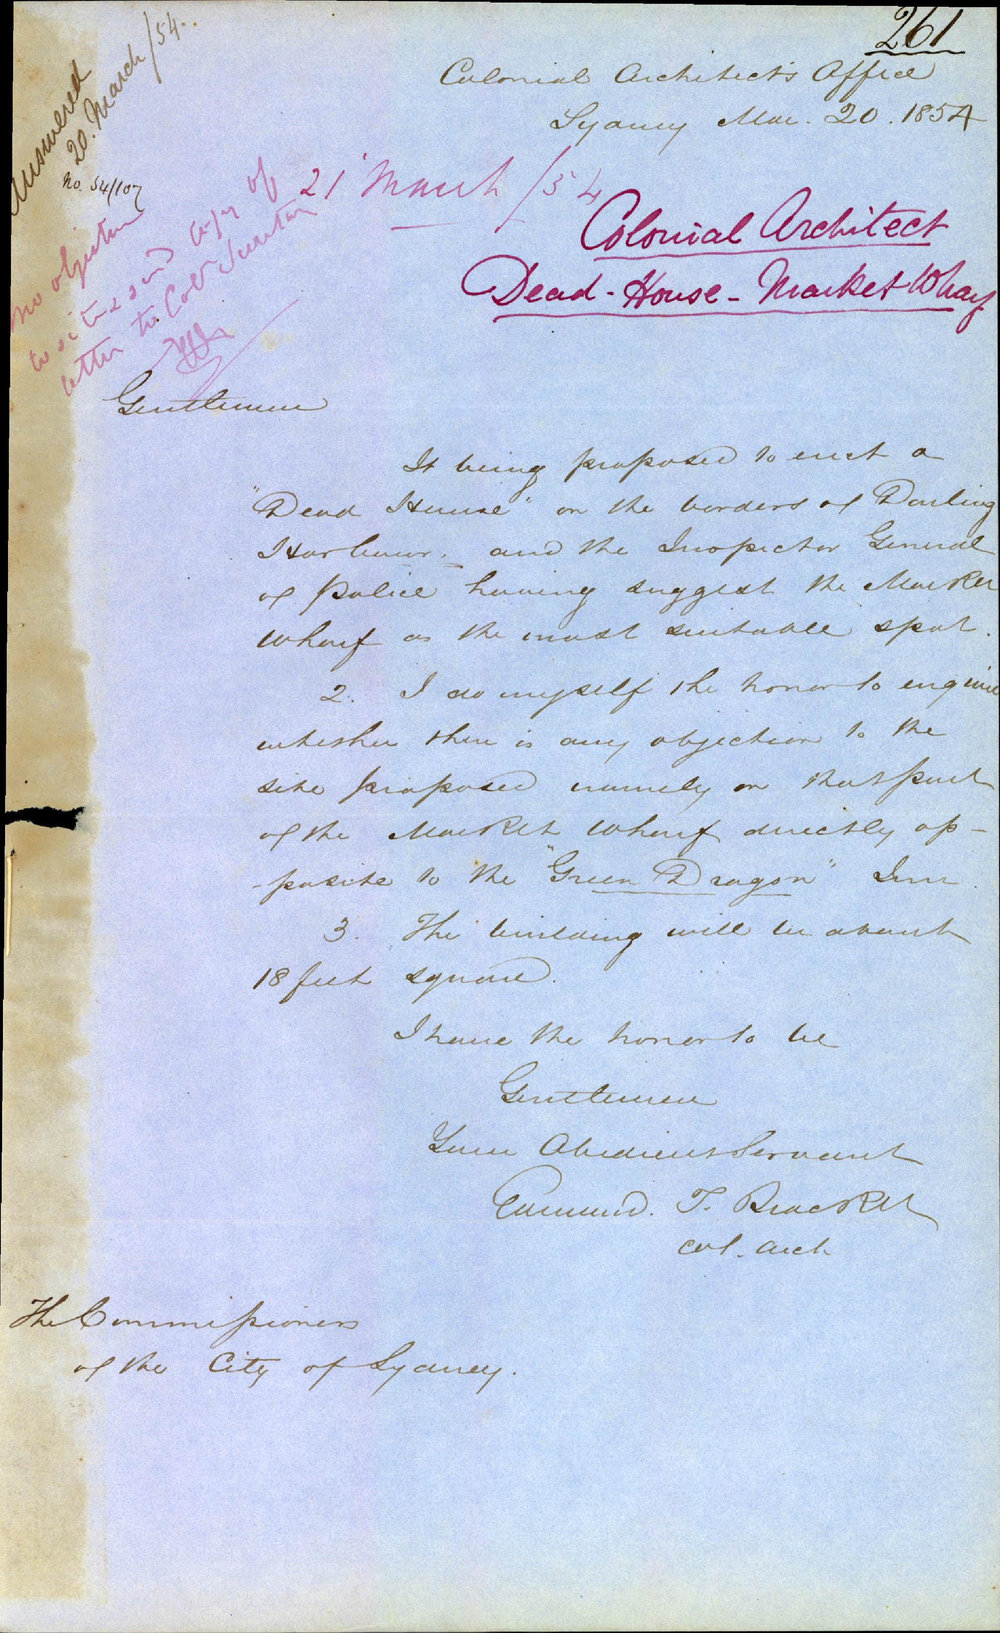 261
Colonial Architect's Office
Sydney Mar. 20. 1854
Answered
20. March/54.
No. 54/107
21 March/54
no objection
to site & send copy of
letter to Col Secretary
Colonial Architect
Dead-House-Market Wharf
Gentlemen
It being proposed to erect a
"Dead House" on the borders of Darling
Harbour. and the Inspector General
of Police having suggest the Market
Wharf as the most suitable spot.
2. I do myself the honor to enquire
whether there is any objection to the
site proposed namely on that part
of the Market Wharf directly op-
-posite to the "Green Dragon" Inn
3. The building will be about
18 feet square.
I have the honor to be
Gentlemen
Your Obedient Servant
Edmund. T. Blacket
Col. Arch
The Commissioners
of the City of Sydney.